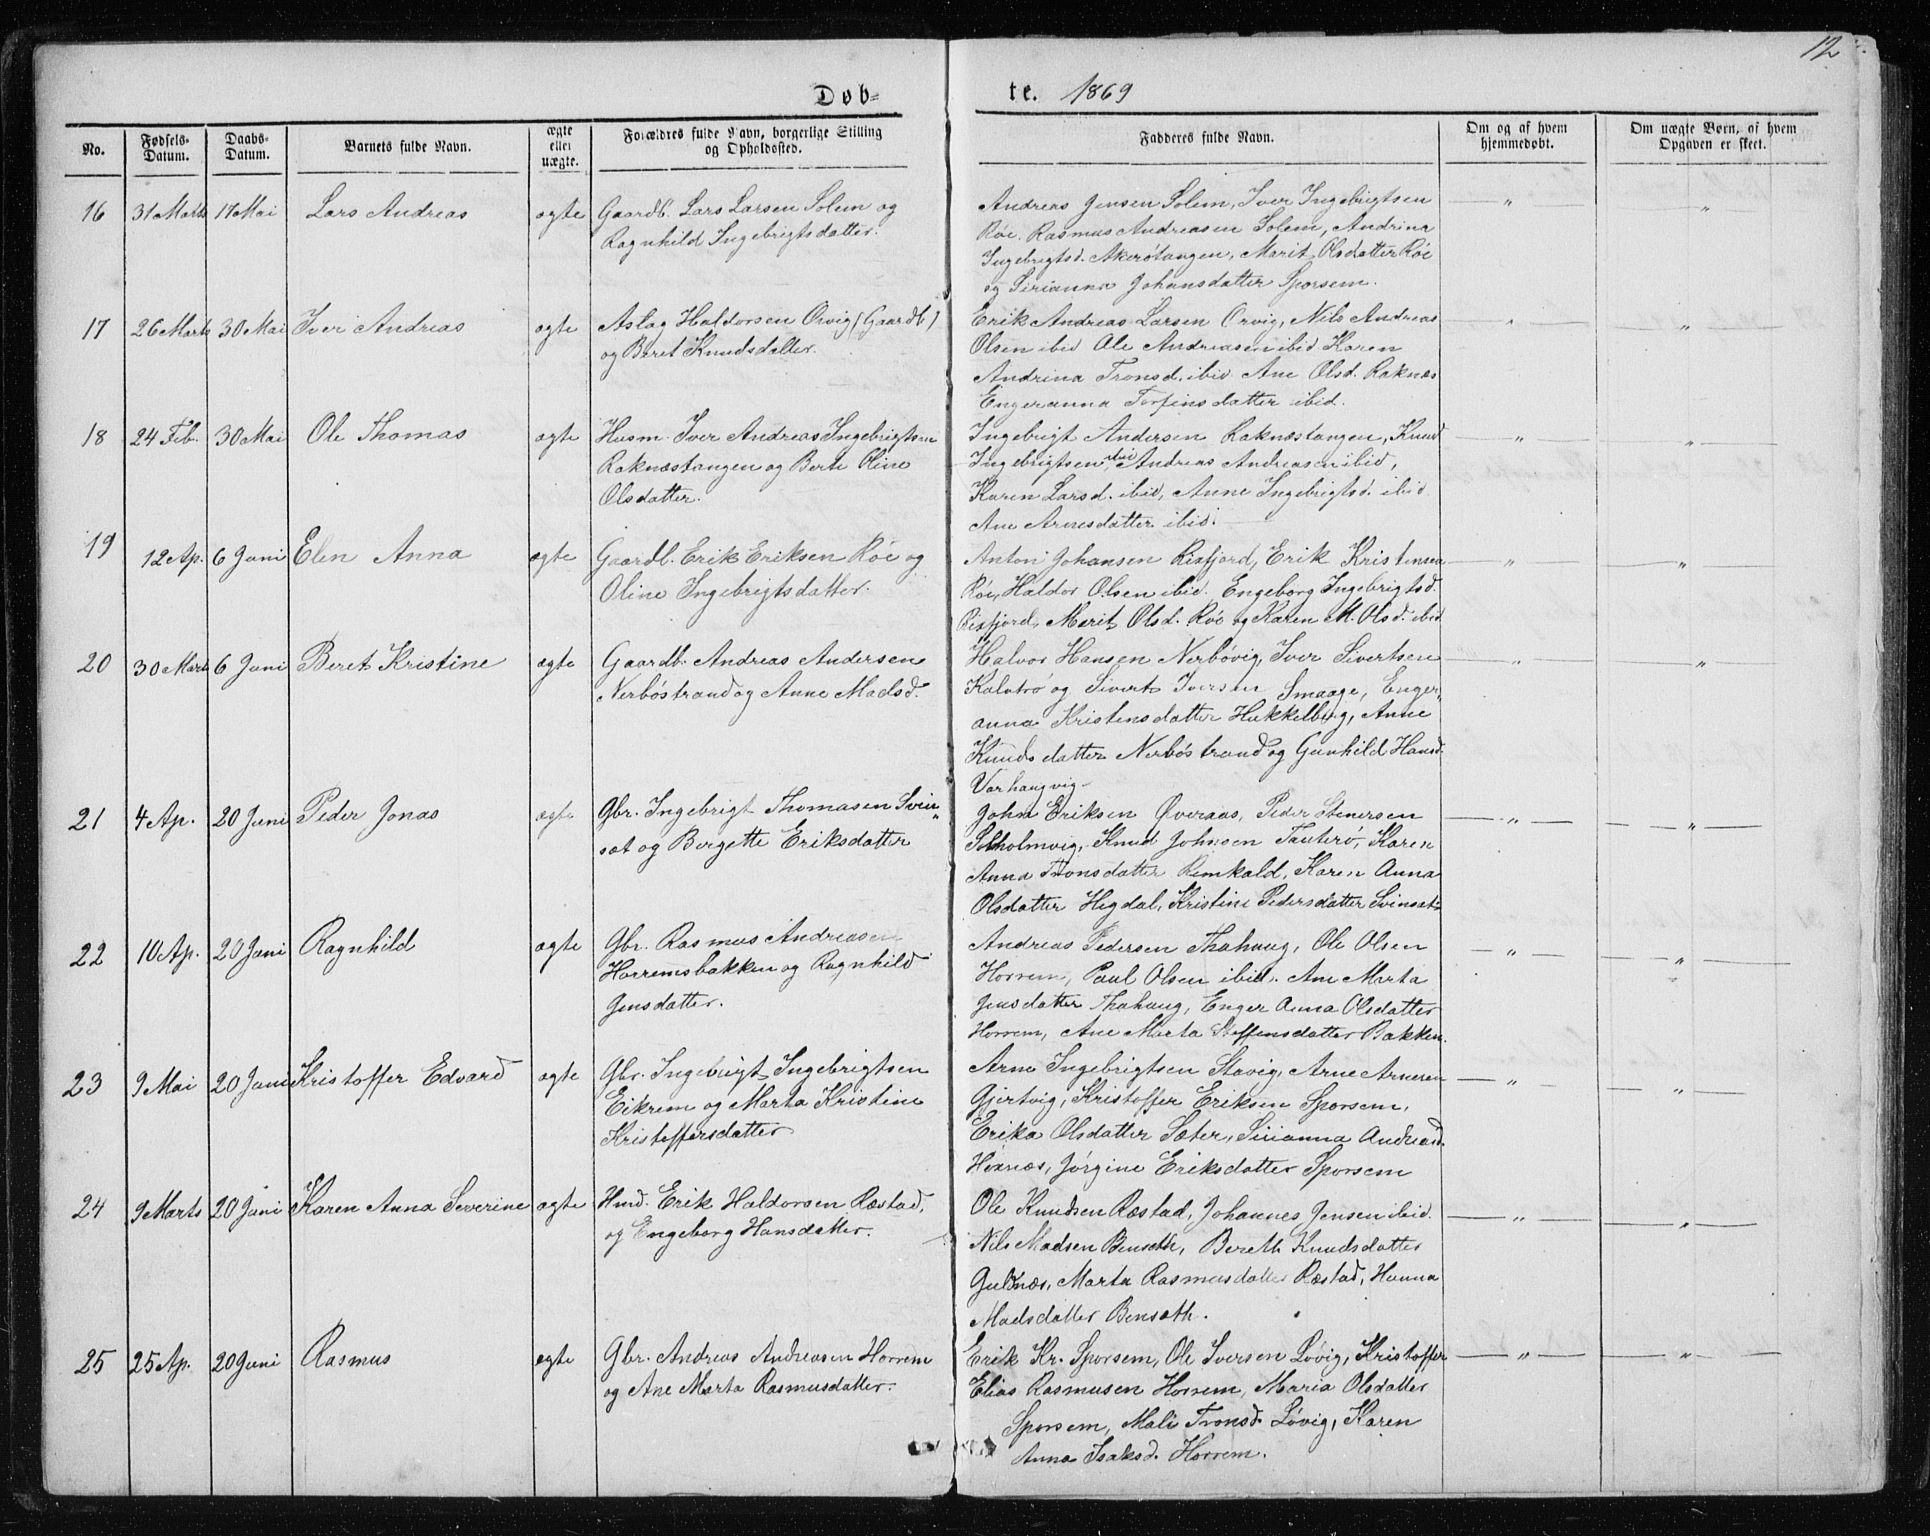 12
Døb-
te. 1869
No.
Fødsels-
Datum.
Daabs-
Datum.
Barnets fulde Navn.
ægte
eller
uægte.
Forældres fulde Navn, borgerlige Stilling
og Opholdssted.
Fadderes fulde Navn.
Om og af hvem
hjemmedøbt.
Om uægte Børn, af hvem
Opgaven er skeet.
16 31 Marts 17 Mai Lars Andreas ægte
Gaardb. Lars Larsen Solem og
Ragnhild Ingebrigtsdatter.
Andreas Jensen Solem, Iver Ingebrigtsen
Röe. Rasmus Andreasen Solem, Andrina
Ingebrigtsd. Akerötangen, Marit Olsdatter Röe
og Sirianna Johansdatter Sporsem.
17 26 Marts 30 Mai Iver Andreas ægte
Aslag Haldorsen Orvig (Gaardb)
og Beret Knudsdatter.
Erik Andreas Larsen Orvig, Nils Andreas
Olsen ibid Ole Andreasen ibid Karen
Andrina Tronsd. ibid Ane Olsd. Raknæs
Engeranna Torfinsdatter ibid.
18 24 Feb. 30 Mai Ole Thomas ægte
Husm. Iver Andreas Ingebrigtsen
Raknæstangen og Berte Oline
Olsdatter.
Ingebrigt Andersen Raknæstangen, Knud
Ingebrigtsen ibid, Andreas Andreasen ibid,
Karen Larsd. ibid, Anne Ingebrigtsd. ibid
Ane Arnesdatter ibid.
19 12 Ap. 6 Juni Elen Anna ægte
Gaardb. Erik Eriksen Röe og
Oline Ingebrigtsdatter.
Anton Johansen Risfjord, Erik Kristensen
Röe, Haldor Olsen ibid. Engeborg Ingebrigtsd.
Risfjord, Merit Olsd. Röe og Karen M. Olsd. ibid
20 30 Marts 6 Juni Beret Kristine ægte
Gaardb. Andreas Andersen
Nerböstrand og Anne Madsd.
Halvor Hansen Nerbövig, Iver Sivertsen
Kalvtrö og Sivert Iversen Smaage, Enger-
anna Kristensdatter Hukkelberg, Anne
Knudsdatter Nerböstrand og Gunhild Hansd.
Varhaugvig
21 4 Ap. 20 Juni Peder Jonas ægte
Gbr. Ingebrigt Thomasen Svin-
sæt og Bergette Eriksdatter
John Eriksen Øveraas, Peder Stenersen
Solholmvig, Knud Johnsen Tauterö, Karen
Anna Tronsdatter Remkald, Karen Anna
Olsdatter Hegdal, Kristine Pedersdatter Svinsæt
22 10 Ap. 20 Juni Ragnhild ægte
Gbr. Rasmus Andreasen
Horremsbakken og Ragnhild
Jensdatter.
Andreas Pedersen Thahaug, Ole Olsen
Horrem, Paul Olsen ibid. Ane Marta
Jensdatter Thahaug, Enger Anna Olsdatter
Horrem, Ane Marta Steffensdatter Bakken.
23 9 Mai 20 Juni Kristoffer Edvard ægte
Gbr. Ingebrigt Ingebrigtsen
Eikrem og Marta Kristine
Kristoffersdatter
Arne Ingebrigtsen Stavig, Arne Arnesen
Gjertvig, Kristoffer Eriksen Sporsem,
Erika Olsdatter Sæter, Sirianna Andreasd.
Hoxnæs, Jörgine Eriksdatter Sporsem
24 9 Marts 20 Juni Karen Anna Severine ægte
Hmd. Erik Haldorsen Ræstad,
og Engeborg Hansdatter.
Ole Knudsen Ræstad, Johannes Jensen ibid.
Nils Madsen Bensæth, Bereth Knudsdatter
Guldnæs, Marta Rasmusdatter Ræstad, Hanna
Madsdatter Bensæth.
25 25 Ap. 20 Juni Rasmus ægte
Gbr. Andreas Andreasen Horrem
og Ane Marta Rasmusdatter.
Erik Kr. Sporsem, Ole Iversen Lövig, Kristoffer
Elias Rasmusen Horrem, Maria Olsdatter
Sporsem, Mali Tronsd. Lövig, Karen
Anna Isaksd. Horrem.